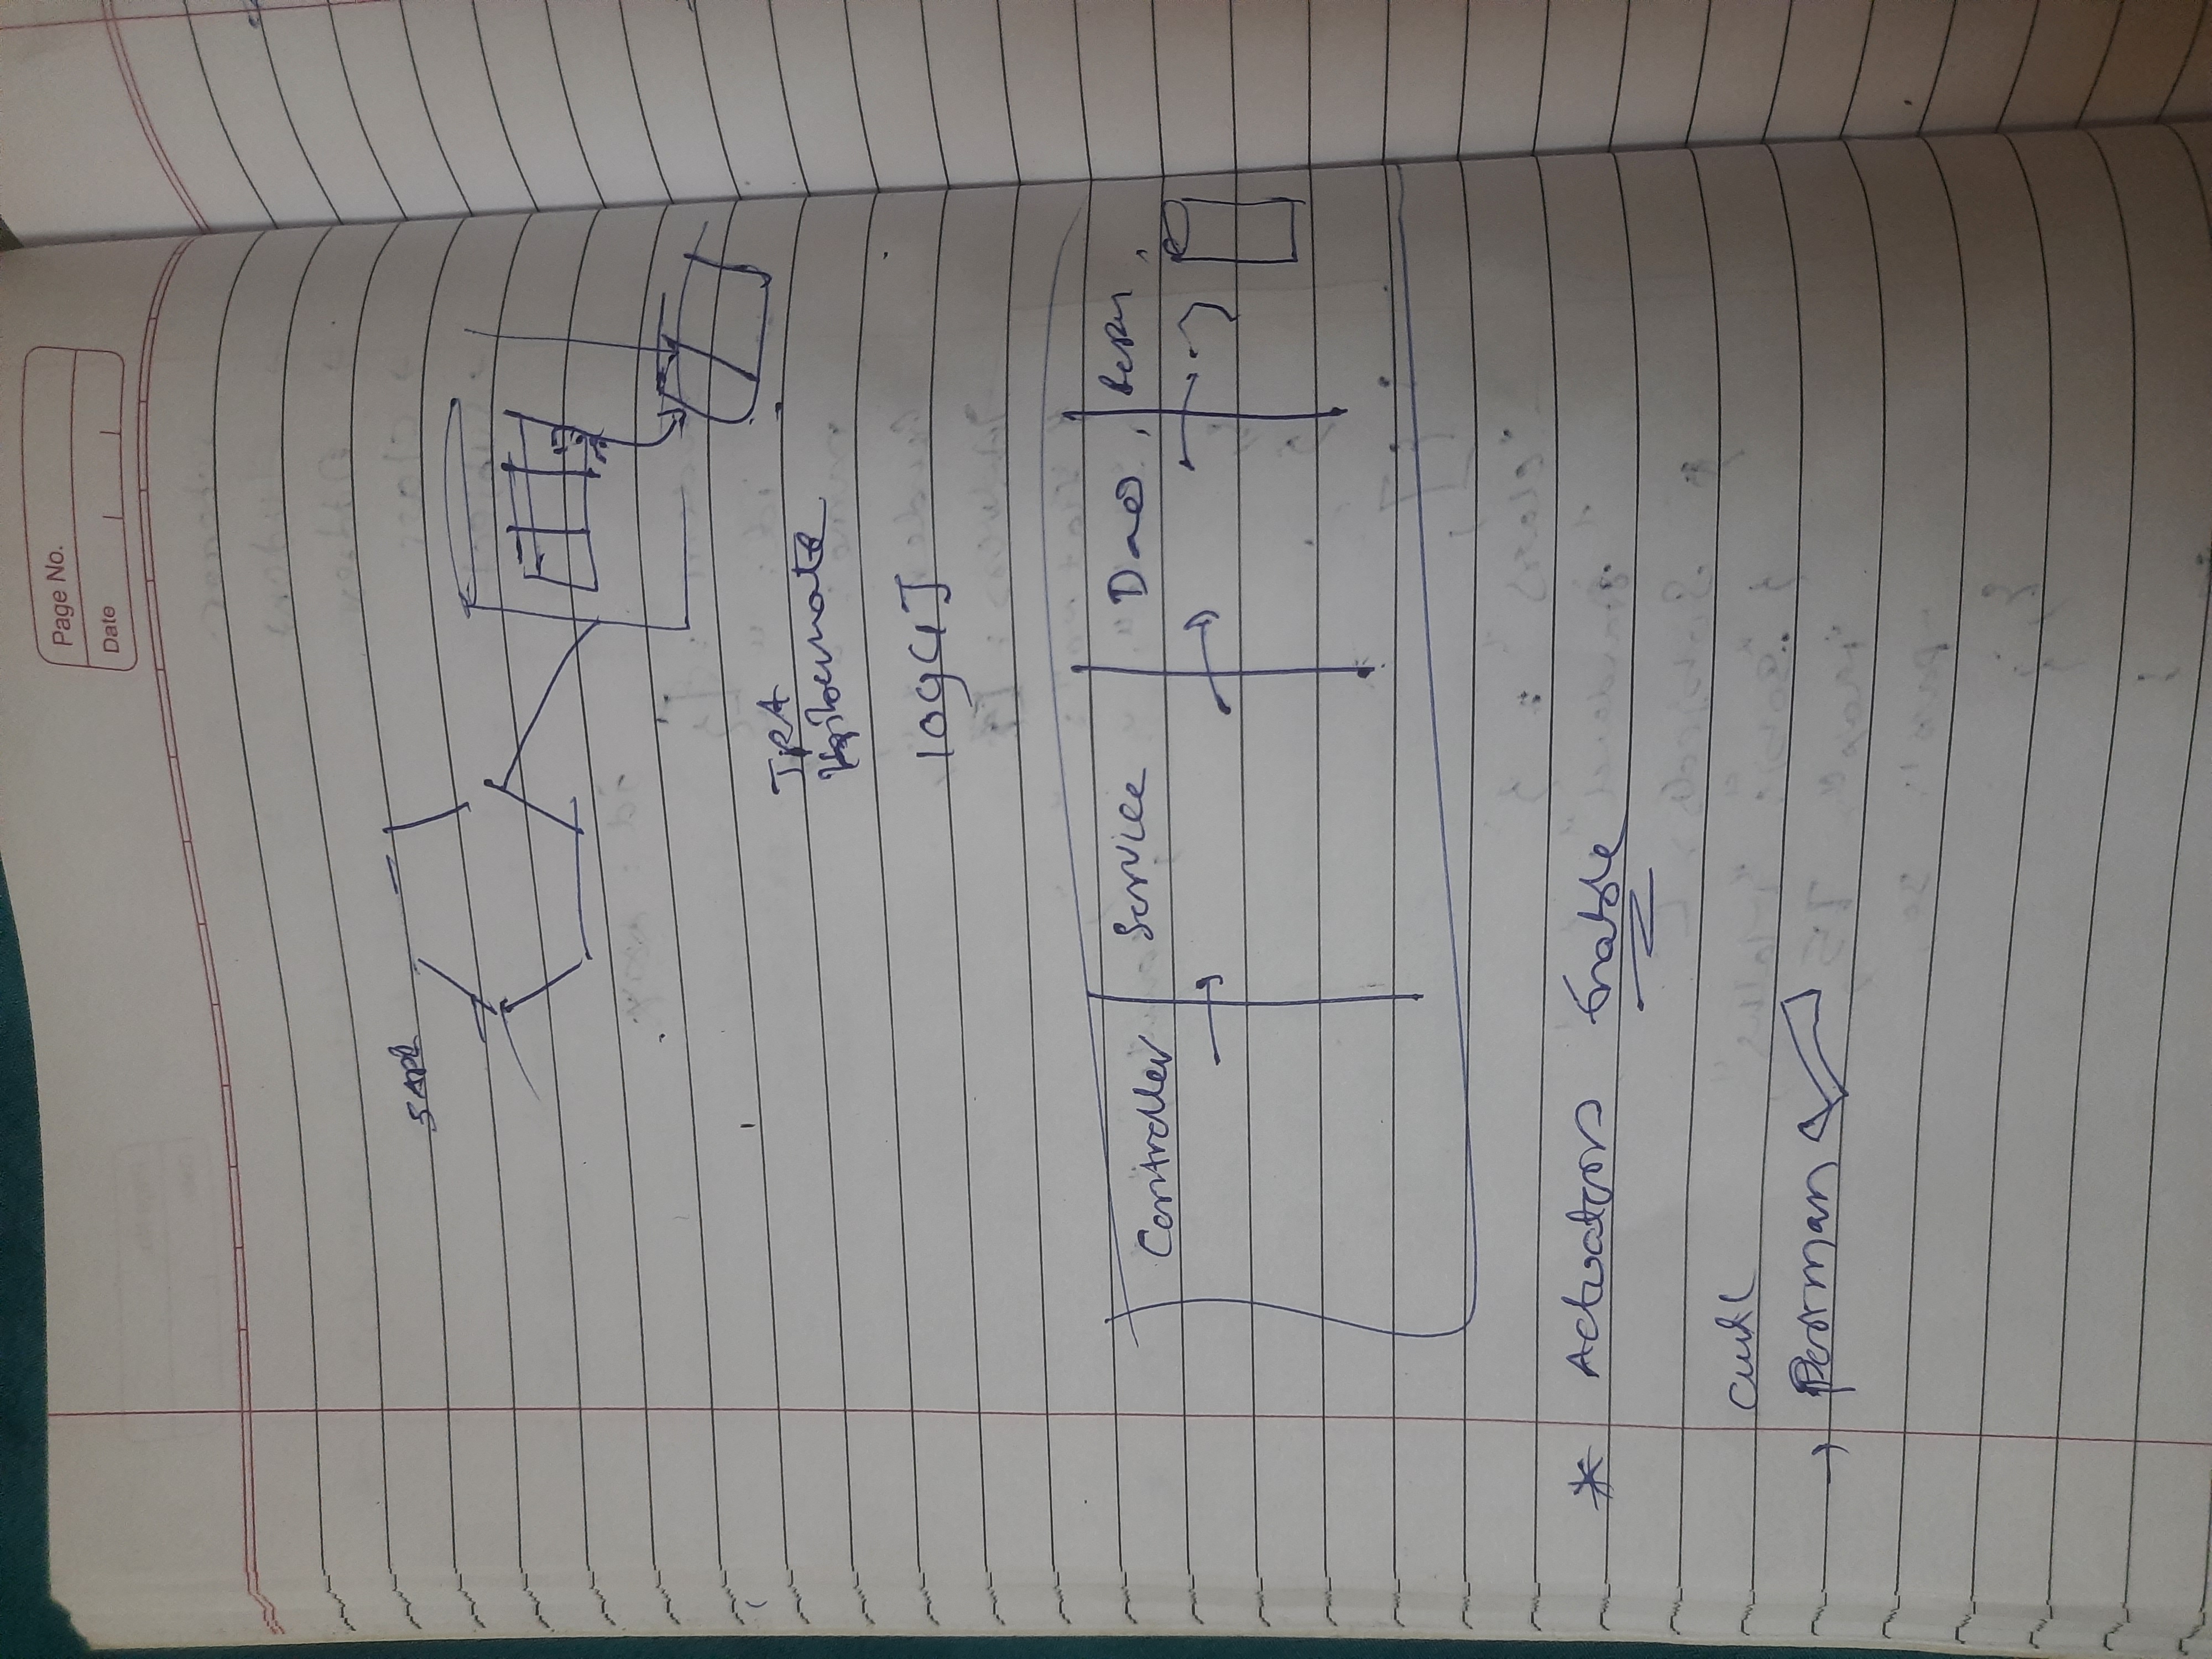 Page No.
Date
5 API
JPA
Hibernate
log4J
Controller Service Dao,
* Actuators Enable
curl
→ Postman